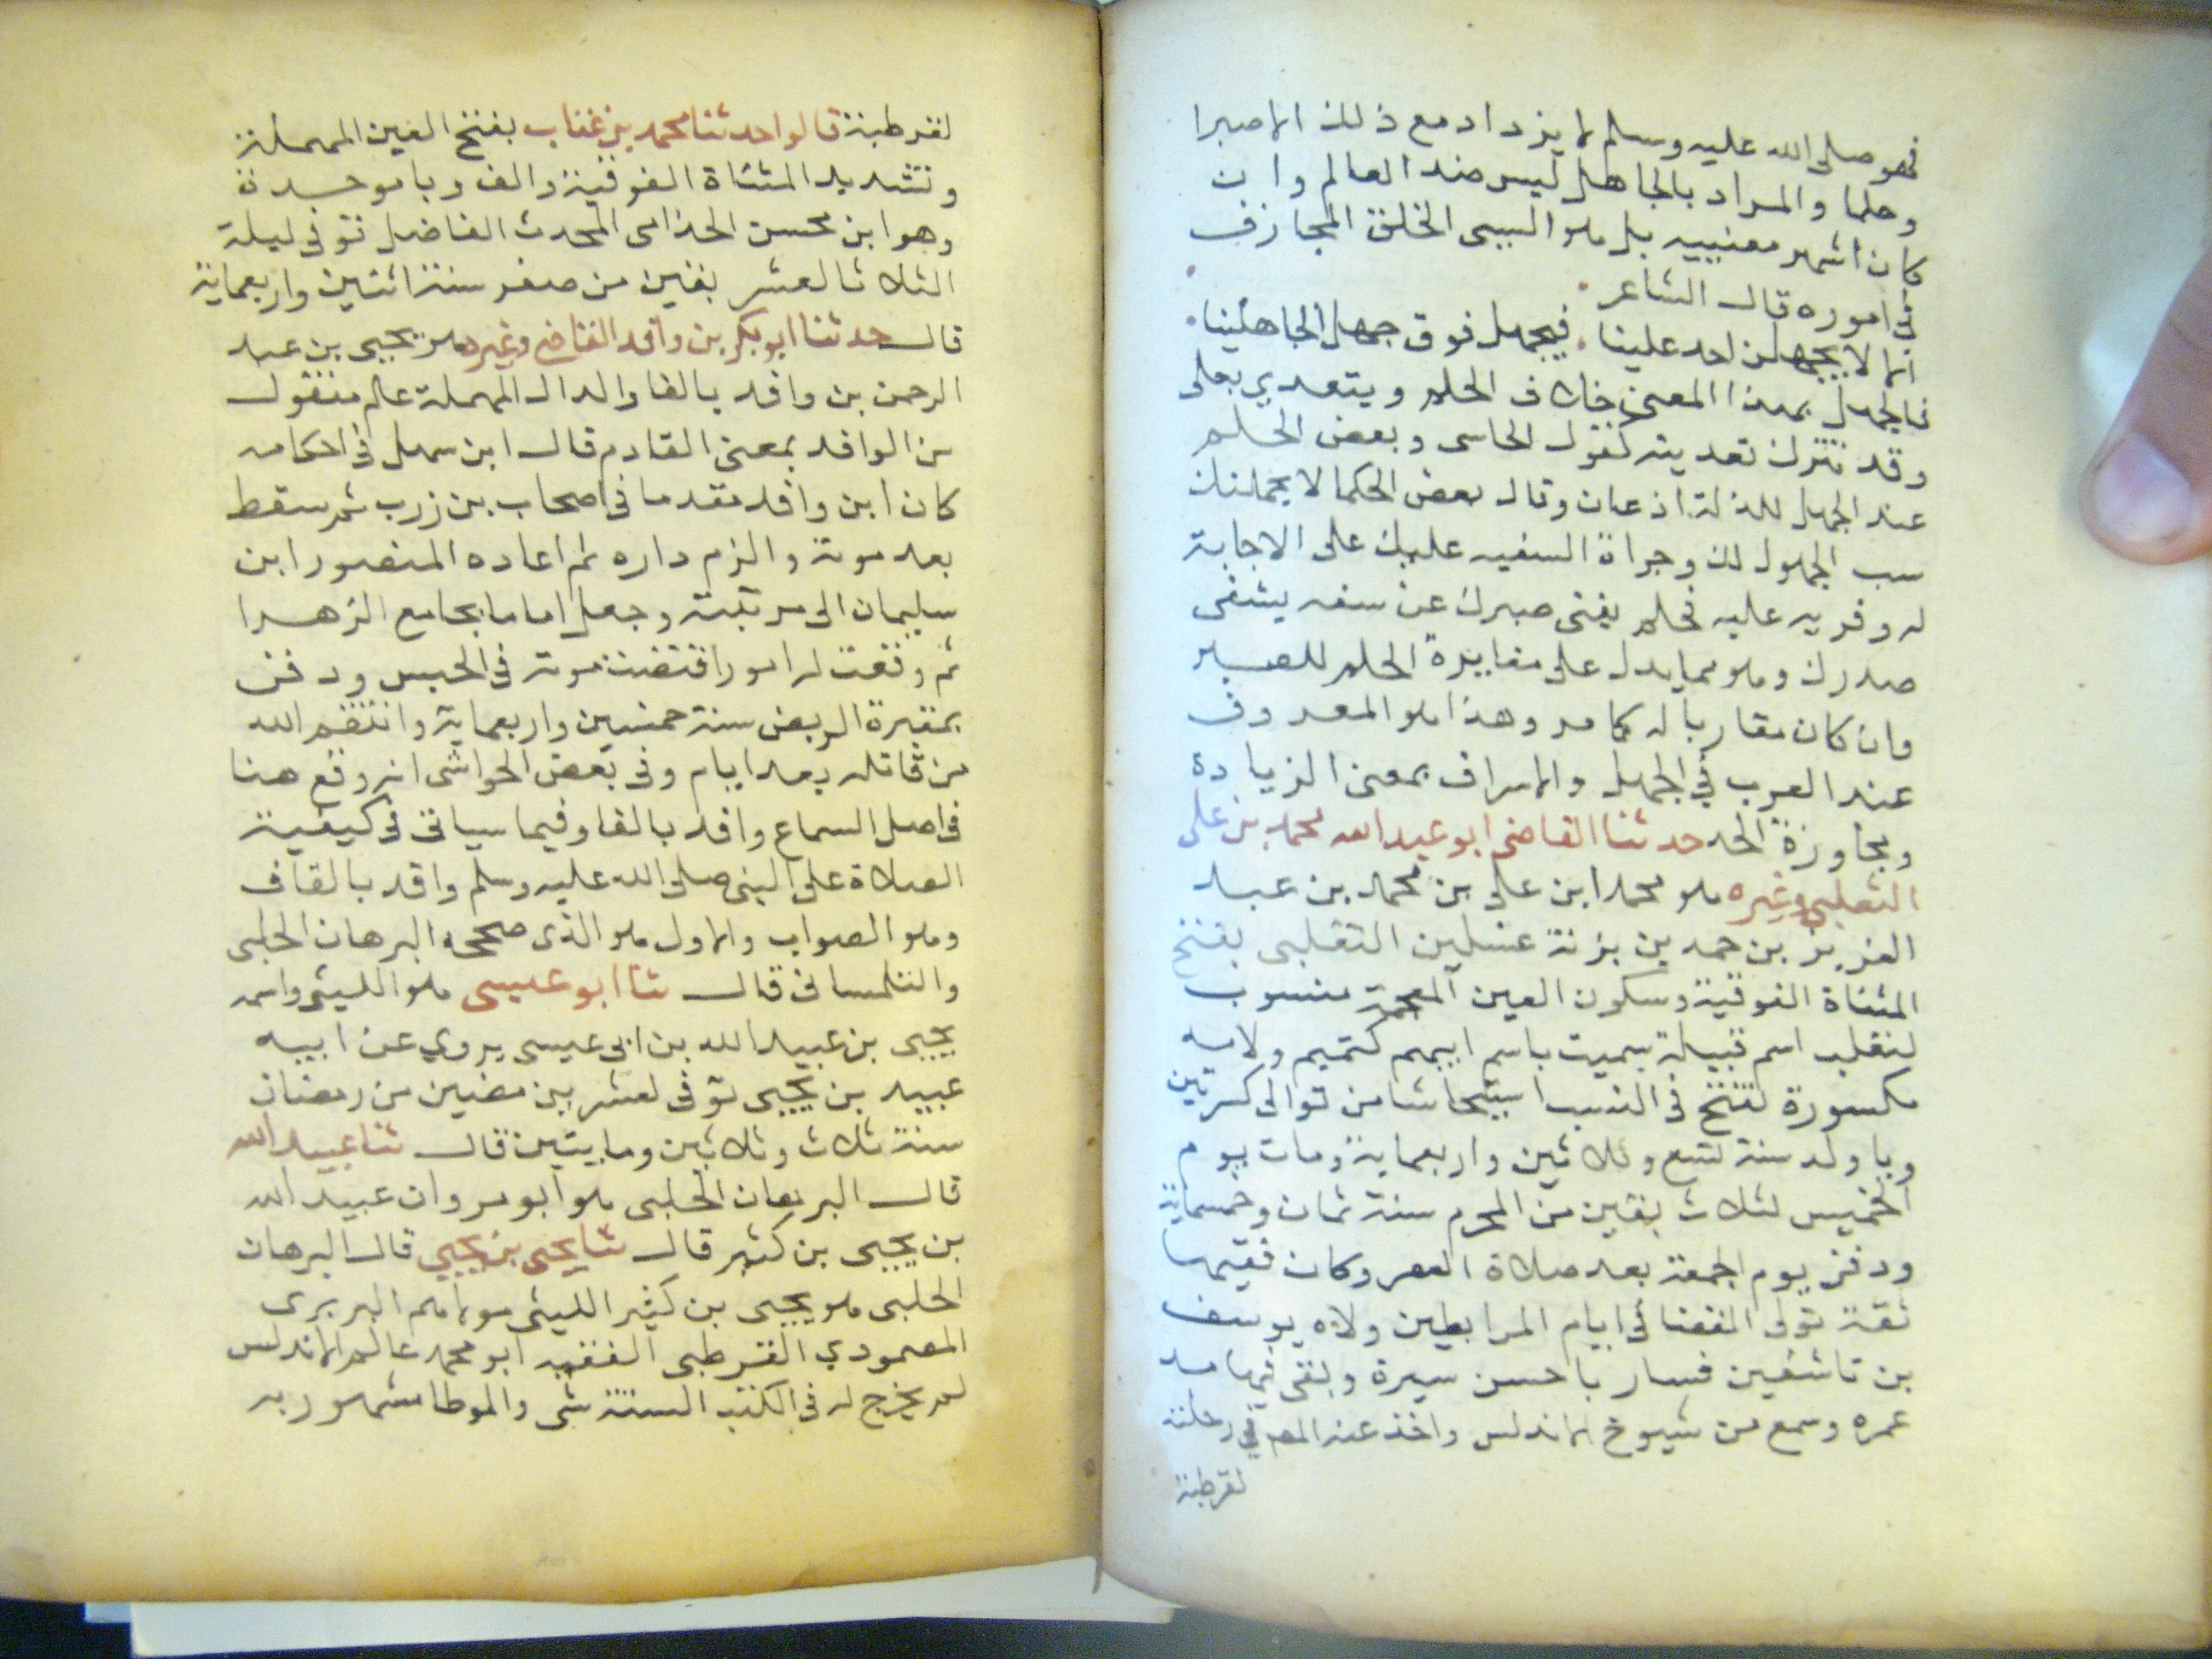 فهو صلى الله عليه وسلم لا يزداد مع ذلك الا صبرا
وحلما والمراد بالجاهل ليس ضد العالم وان
كان اشهر معنييه بل هو السيى الخلق المجازف
في اموره قال الشاعر
الا لا يجهلن احد علينا . فيجهل فوق جهل الجاهلينا
فالجهل بهذا المعنى خلاف الحلم ويتعدي بعلى
وقد تترك تعديته كقول الحماسى وبعض الحلم
عند الجهل للذلة اذعان وقال بعض الحكما لا يحملنك
سب الجهول لك وجراة السفيه عليك على الاجابة
له وفريه عليه فحلم يفنى صبرك عن سفه يشفى
صدرك وهو مما يدل على مغايرة الحلم للصبر
وان كان مقاربا له كما مر وهذا هو المعروف
عند العرب في الجهل والاسراف بمعنى الزيادة
ومجاوزة الحد حدثنا القاضى ابو عبد الله محمد بن على
التغلبي وغيره هو محمد ابن على بن محمد بن عبد
العزيز بن حمدين بزنة غسلين التغلبى بفتح
المثناة الفوقية وسكون الغين المعجمة منسوب
لتغلب اسم قبيلة سميت باسم ابيهم كتميم ولامه
مكسورة تفتح في النسب استيحاشا من توالى كسرتين
ويا ولد سنة تسع وثلاثين واربعماية ومات يوم
الخميس لثلاث بقين من المحرم سنة ثمان وخمسماية
ودفن يوم الجمعة بعد صلاة العصر وكان فقيها
ثقة تولى القضا في ايام المرابطين ولاه يوسف
بن تاشفين فسار باحسن سيرة وبقى فيها مد
عمره وسمع من شيوخ الاندلس واخذ عنه المص في رحلته
لقرطبة
لقرطبة قالوا حدثنا محمد بن عتاب بفتح العين المهملة
وتشديد المثناة الفوقية والف وبا موحدة
وهو ابن محسن الجذامى المحدث الفاضل توفى ليلة
الثلاثا لعشر بقين من صفر سنة اثنتين واربعماية
قال حدثنا ابو بكر بن وافد القاضي وغيره هو يحيى بن عبد
الرحمن بن وافد بالفا والدال المهملة عالم منقول
من الوافد بمعنى القادم قال ابن سهل في احكامه
كان ابن وافد مقدما في اصحاب بن زرب ثم سقط
بعد موته والزم داره ثم اعاده المنصور ابن
سليمان الى مرتبته وجعل اماما بجامع الزهرا
ثم وقعت له امور اقتضت موته في الحبس ودفن
بمقبرة الربض سنة خمسين واربعماية وانتقم الله
من قاتله بعد ايام وفي بعض الحواشى انه وقع هنا
في اصل السماع وافد بالفا وفيما سياتى في كيفية
الصلاة على النبى صلى الله عليه وسلم واقد بالقاف
وهو الصواب والاول هو الذى صححه البرهان الحلبى
والتلمسانى قال ثنا ابو عيسى هو الليثى واسمه
يحيى بن عبيد الله بن ابى عيسى يروي عن ابيه
عبيد بن يحيى توفى لعشرين مضين من رمضان
سنة ثلاث وثلاثين ومايتين قال ثنا عبيد الله
قال البرهان الحلبى هو ابو مروان عبيد الله
بن يحيى بن كثير قال ثنا يحيى بن يحيي قال البرهان
الحلبى هو يحيى بن كثير الليثى مولاهم البربرى
المصمودي القرطبى الفقيه ابو محمد عالم الاندلس
لم يخرج له في الكتب الستة شى والموطا مشهور به